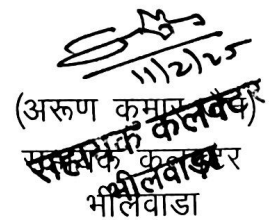 11/2/25
(अरूण कुमार जैन)
सहायक कलक्टर
सहायक कलक्टर
भीलवाड़ा
भीलवाडा